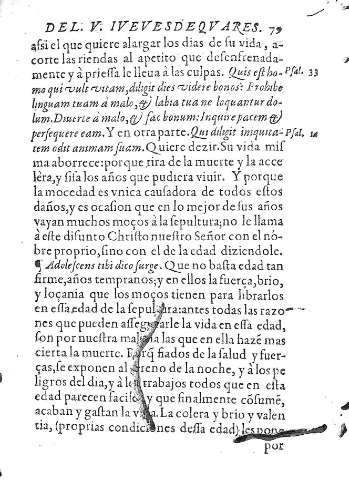 DEL. V. IVEVES DE QVARES. 79
assi el que quiere alargar los dias de su vida, a-
corte las riendas al apetito que desenfrenada-
mente y à priessa le lleua à las culpas. Quis est ho- Psal. 33
mo qui vult vitam, diligit dies videre bonos? Prohibe
linguam tuam à malo, & labia tua ne loquantur do-
lum. Diuerte à malo, & fac bonum: Inquire pacem &
persequere eam. Y en otra parte. Qui diligit iniquita- Psal. 10
tem odit animam suam. Quiere dezir. Su vida mis
ma aborrece: porque tira de la muerte y la acce
lèra, y sisa los años que pudiera viuir. Y porque
la mocedad es vnica causadora de todos estos
daños, y es ocasion que en lo mejor de sus años
vayan muchos moços à la sepultura; no le llama
à este difunto Christo nuestro Señor con el nõ-
bre proprio, sino con el de la edad diziendole.
¶ Adolescens tibi dico surge. Que no basta edad tan
firme, años tempranos; y en ellos la fuerça, brio,
y loçania que los moços tienen para librarlos
en essa edad de la sepultura: antes todas las razo
nes que pueden assegurarle la vida en essa edad,
son por nuestra mal las que en ella hazẽ mas
cierta la muerte. Porq̃ fiados de la salud y fuer-
ças, se exponen al sereno de la noche, y à los pe
ligros del dia, y à los trabajos todos que en esta
edad parecen faciles, y que finalmente cõsumẽ,
acaban y gastan la vida. La colera y brio y valen
tia, (proprias condiciones dessa edad) les pone
por